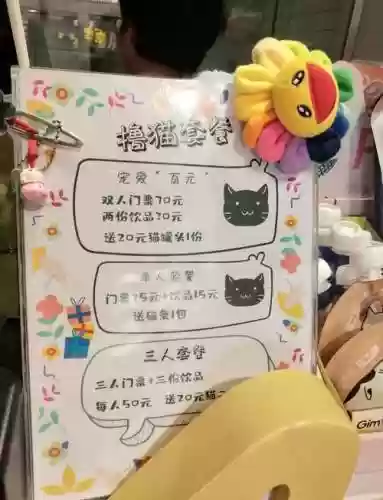 撸猫套餐
宠爱"百元"
双人门票70元
两份饮品30元
送20元猫罐头1份
单人套餐
门票35元+饮品15元
送猫条1包
三人套餐
三人门票+三份饮品
每人50元 送20元猫
Gim